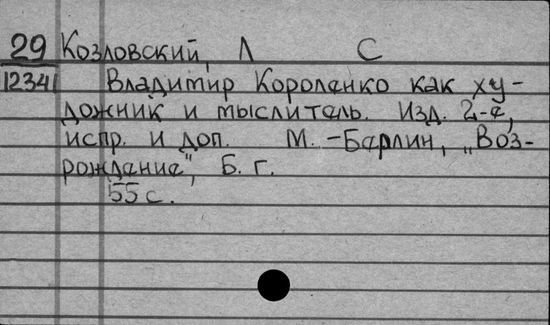 29 Козловский, Л С
1234 Владимир Короленко как ху-
дожник и мыслитель. Изд. 2-е,
испр. и доп. М. -Берлин, „Воз-
рождение", Б. г.
55 с.